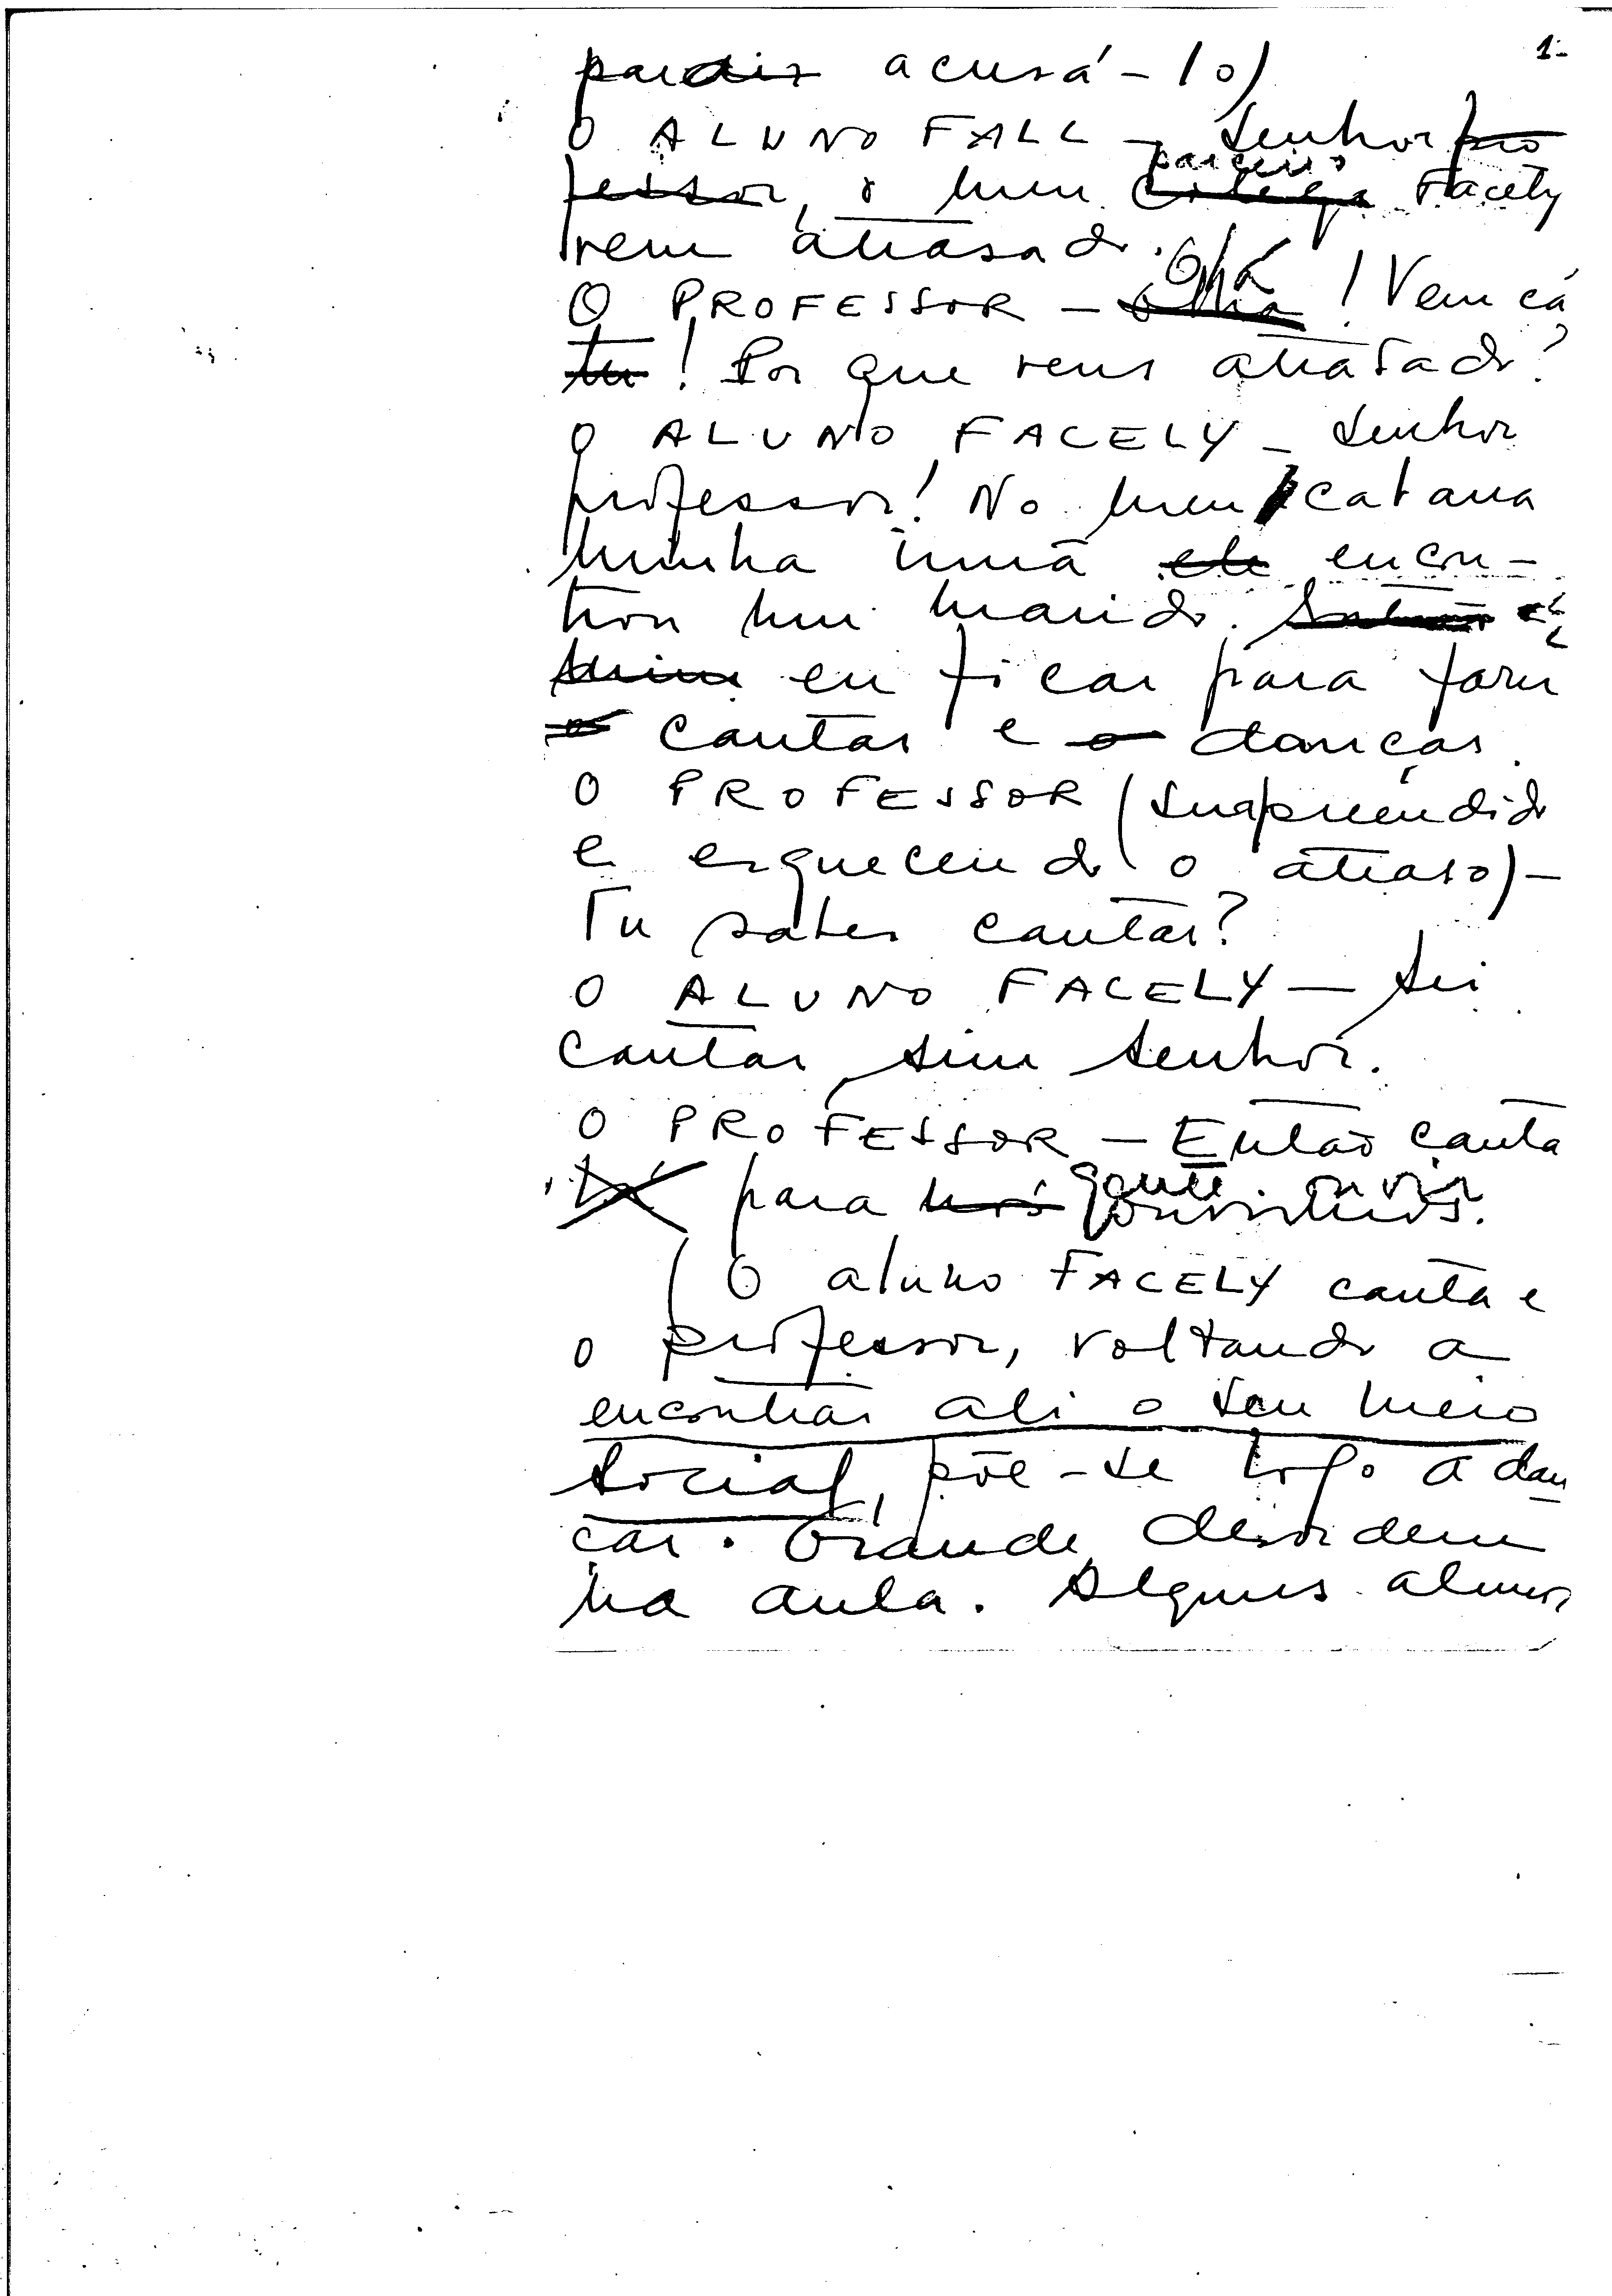 1-
para acusá-lo)
O ALUNO FALL - Senhor pro
fessor, o meu colega parceiro Facely
vem atrasado.
O PROFESSOR - Olhá! Vem cá
tu! Por que vens atrasado?
O ALUNO FACELY - Senhor
professor! No meu catana
minha irmã ele encon-
trou um marido.
eu ficar para fazer
o cantar e o dançar.
O PROFESSOR (surpreendido
e esquecendo o atraso) -
Tu sabes cantar?
O ALUNO FACELY - Sei
cantar, sim senhor.
O PROFESSOR - Então canta
lá para nós gente ouvir
(O aluno FACELY canta e
o professor, voltando a
encontrar ali o seu meio
social, põe-se logo a dan
çar. Grande desordem
na aula. Alguns alunos